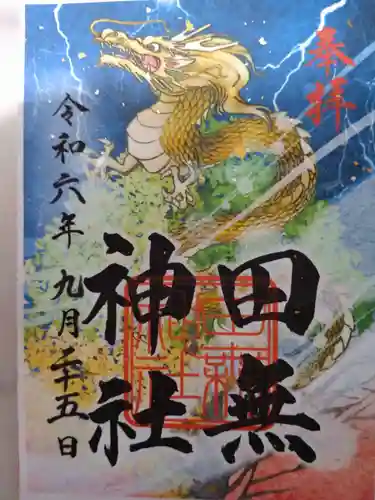 奉拝
田無
神社
令和六年九月二十五日